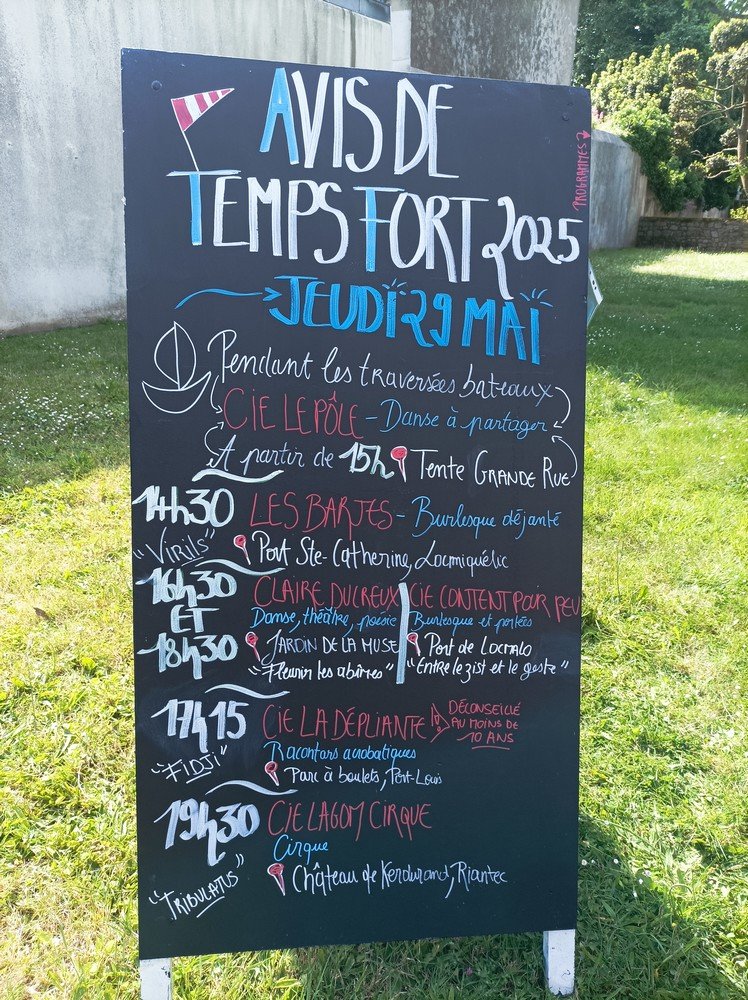 AVIS DE
PROGRAMMES
TEMPS FORT 2025
JEUDI 29 MAI
Pendant les traversées bateaux
CIE LE PÔLE - Danse à partager
A partir de 15h Tente GRANDE RUE
14h30 LES BARJES - Burlesque déjanté
"VIRILS" Port Ste-Catherine, Locmiquélic
16h30 CLAIRE DUCREUX CIE CONTENT POUR PEU
ET Danse, théâtre, poésie Burlesque et portées
18h30 JARDIN DE LA MUSE Port de Locmalo
"Fleurir les abîmes" "Entre le zist et le geste"
17h15 CIE LA DÉPLIANTE DÉCONSEILLÉ
AU MOINS DE
10 ANS
"FIDJI" Racontars acrobatiques
Parc à boulets, Port-Louis
19h30 CIE LAGOM CIRQUE
Cirque
"TRIBULATUS" Château de Kerdurand, Riantec